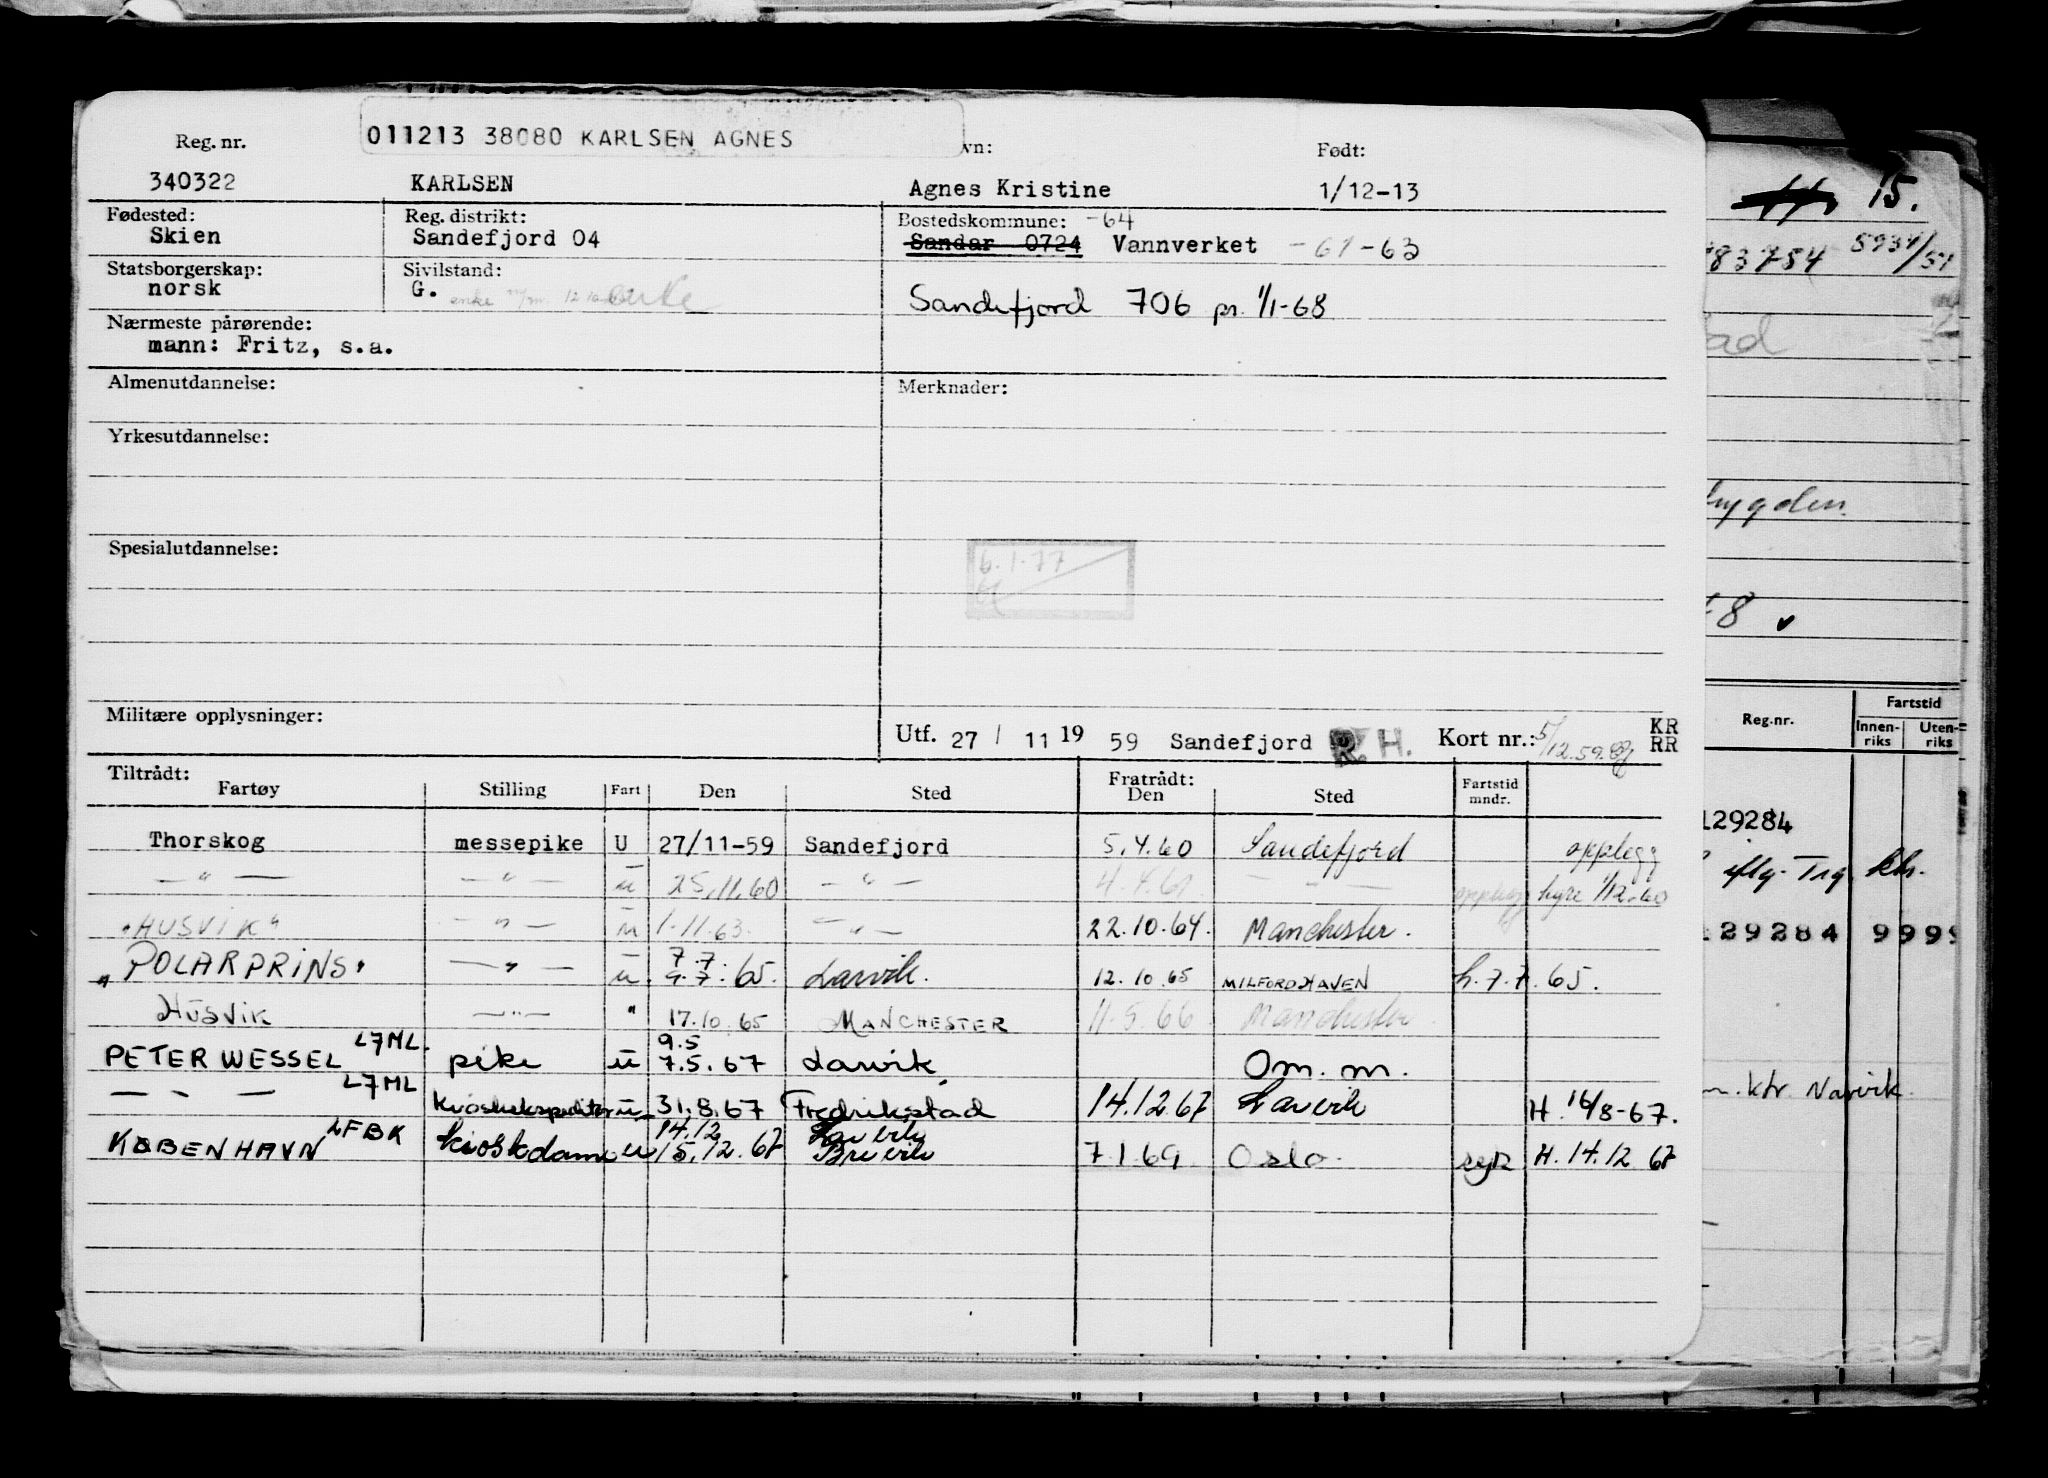 011213 38080 KARLSEN AGNES
Reg. nr. vn: Født:
340322 KARLSEN Agnes Kristine 1/12-13
Fødested: Reg. distrikt: Bostedskommune: -64
Skien Sandefjord 04 Sandar 0724 Vannverket -61-63
Statsborgerskap: Sivilstand:
norsk G. enke enke Sandefjord 706 pr. 1/1-68
Nærmeste pårørende:
mann: Fritz, s.a.
Almenutdannelse: Merknader:
Yrkesutdannelse:
Spesialutdannelse:
6.1.77
Militære opplysninger: Utf. 27 / 11 19 59 Sandefjord R.H. Kort nr.: 5/12.59 KR RR
Tiltrådt: Fratrådt:
Fartøy Stilling Fart Den Sted Den Sted Fartstid mndr.
Thorskog messepike U 27/11-59 Sandefjord 5.4.60 Sandefjord opplegg
— " — — " — u 25.11.60 — " — 4.4.61 — " — opplegg hyre 1/12.60
"HUSVIK" — " — u 1.11.63. — " — 22.10.64. Manchester.
"POLARPRINS" — " — u. 7.7. 9.7.65. Larvik. 12.10.65 MILFORDHAVEN h.7.7.65.
HUSVIK — " — " 17.10.65 MANCHESTER 11.5.66 Manchester
PETER WESSEL L7ML. pike u 9.5 7.5.67 Larvik Om. m.
— " — L7ML kioskekspeditør u 31.8.67 Fredrikstad 14.12.67 Larvik H. 16/8-67.
KØBENHAVN LFBK kioskdame u 14.12 15.12.67 Larvik Brevik 7.1.69 Oslo. syk H. 14.12 67
15.
83754 5934/51
ad
bygden.
8 v
Reg.nr. Fartstid
Innen-riks Uten-riks
129284
iflg. Trg. ktr.
29284 9999
m. ktr Narvik.